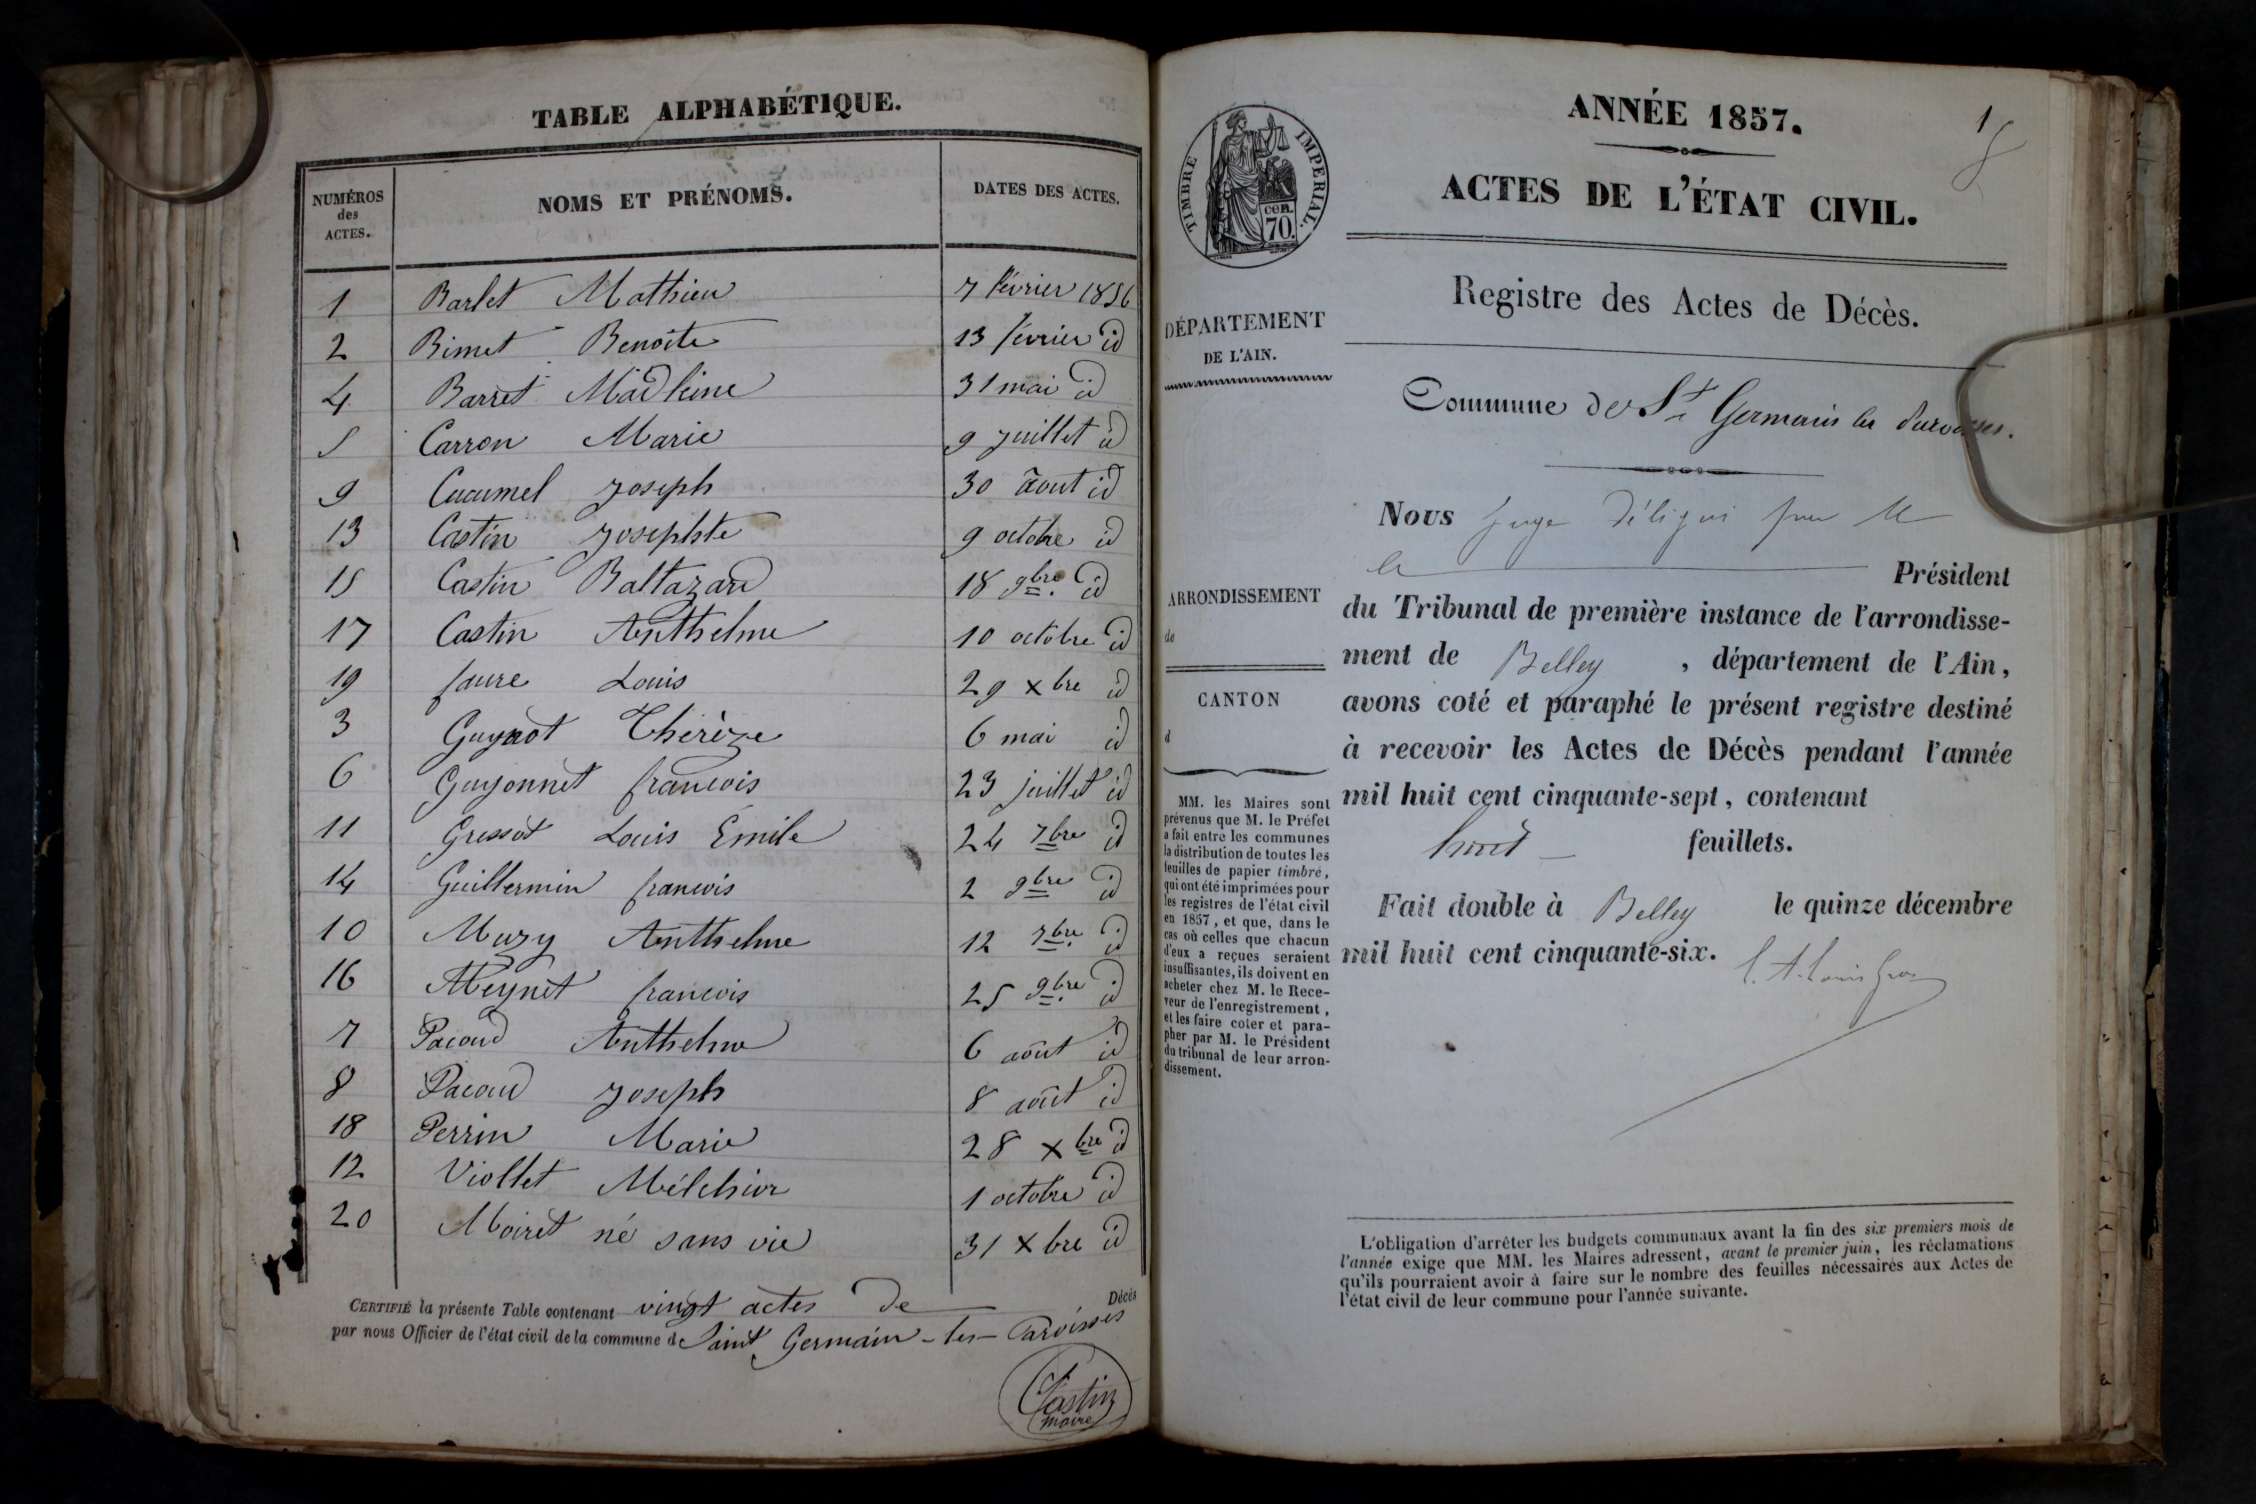 TABLE ALPHABÉTIQUE.
NUMÉROS
des
ACTES.
NOMS ET PRÉNOMS.
DATES DES ACTES.
1 Barlet Mathieu 7 février 1856
2 Bimet Benoite 13 février id
4 Barret Madleine 31 mai id
5 Carron Marie 9 juillet id
9 Cucumel Joseph 30 août id
13 Castin Josephte 9 octobre id
15 Castin Baltazard 18 9bre id
17 Castin Anthelme 10 octobre id
19 faure Louis 29 xbre id
3 Guynot Thérèze 6 mai id
6 Guyonnet francois 23 juillet id
11 Gressot Louis Emile 24 7bre id
14 Guillermin francois 2 9bre id
10 Muzy Anthelme 12 7bre id
16 Meynet francois 25 9bre id
7 Pacoud Anthelme 6 août id
8 Pacoud Joseph 8 août id
18 Perrin Marie 28 xbre id
12 Viollet Mélchior 1 octobre id
20 Moiret né sans vie 31 xbre id
CERTIFIÉ la présente Table contenant vingt actes de Décès
par nous Officier de l'état civil de la commune de Saint Germain-les-Paroisses
Castin
maire
1
8
TIMBRE IMPERIAL.
CEN.
70.
ANNÉE 1857.
ACTES DE L'ÉTAT CIVIL.
Registre des Actes de Décès.
DÉPARTEMENT
DE L'AIN.
ARRONDISSEMENT
de
CANTON
d
MM. les Maires sont
prévenus que M. le Préfet
a fait entre les communes
la distribution de toutes les
feuilles de papier timbré,
qui ont été imprimées pour
les registres de l'état civil
en 1857, et que, dans le
cas où celles que chacun
d'eux a reçues seraient
insuffisantes, ils doivent en
acheter chez M. le Rece-
veur de l'enregistrement,
et les faire coter et para-
pher par M. le Président
du tribunal de leur arron-
dissement.
Commune de St Germain les Paroisses.
Nous Juge Délégué par M
le Président
du Tribunal de première instance de l'arrondisse-
ment de Belley, département de l'Ain,
avons coté et paraphé le présent registre destiné
à recevoir les Actes de Décès pendant l'année
mil huit cent cinquante-sept, contenant
huit feuillets.
Fait double à Belley le quinze décembre
mil huit cent cinquante-six.
L'obligation d'arrêter les budgets communaux avant la fin des six premiers mois de
l'année exige que MM. les Maires adressent, avant le premier juin, les réclamations
qu'ils pourraient avoir à faire sur le nombre des feuilles nécessaires aux Actes de
l'état civil de leur commune pour l'année suivante.